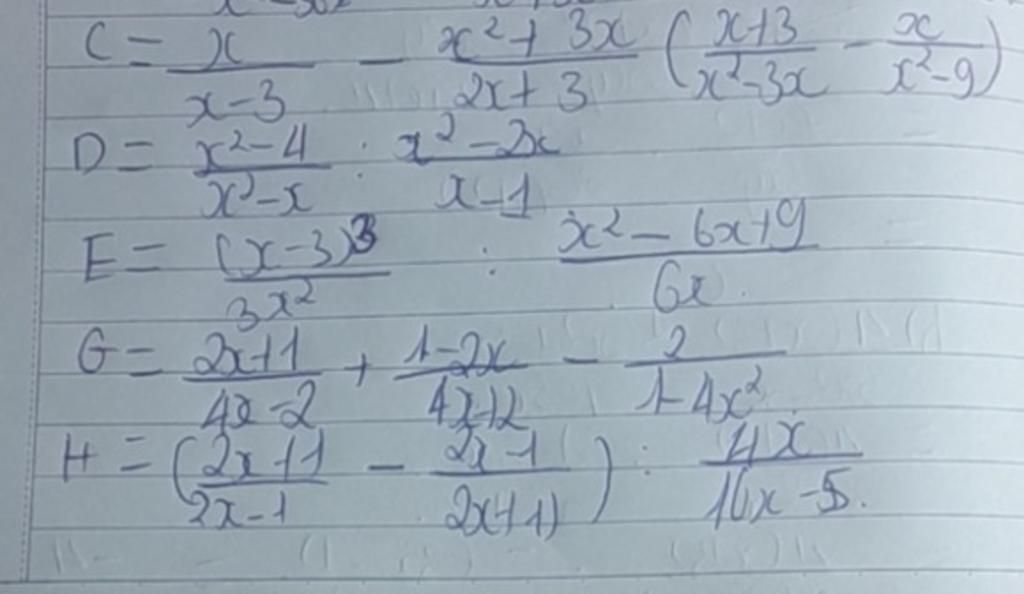 C = x/(x-3) - (x²+3x)/(2x+3) ((x+3)/(x²-3x) - x/(x²-9))
D = (x²-4)/(x²-x) : (x²-2x)/(x-1)
E = (x-3)³/(3x²) : (x²-6x+9)/(6x)
G = (2x+1)/(4x-2) + (1-2x)/(4x+2) - 2/(1-4x²)
H = ((2x+1)/(2x-1) - (2x-1)/(2x+1)) : 4x/(10x-5).